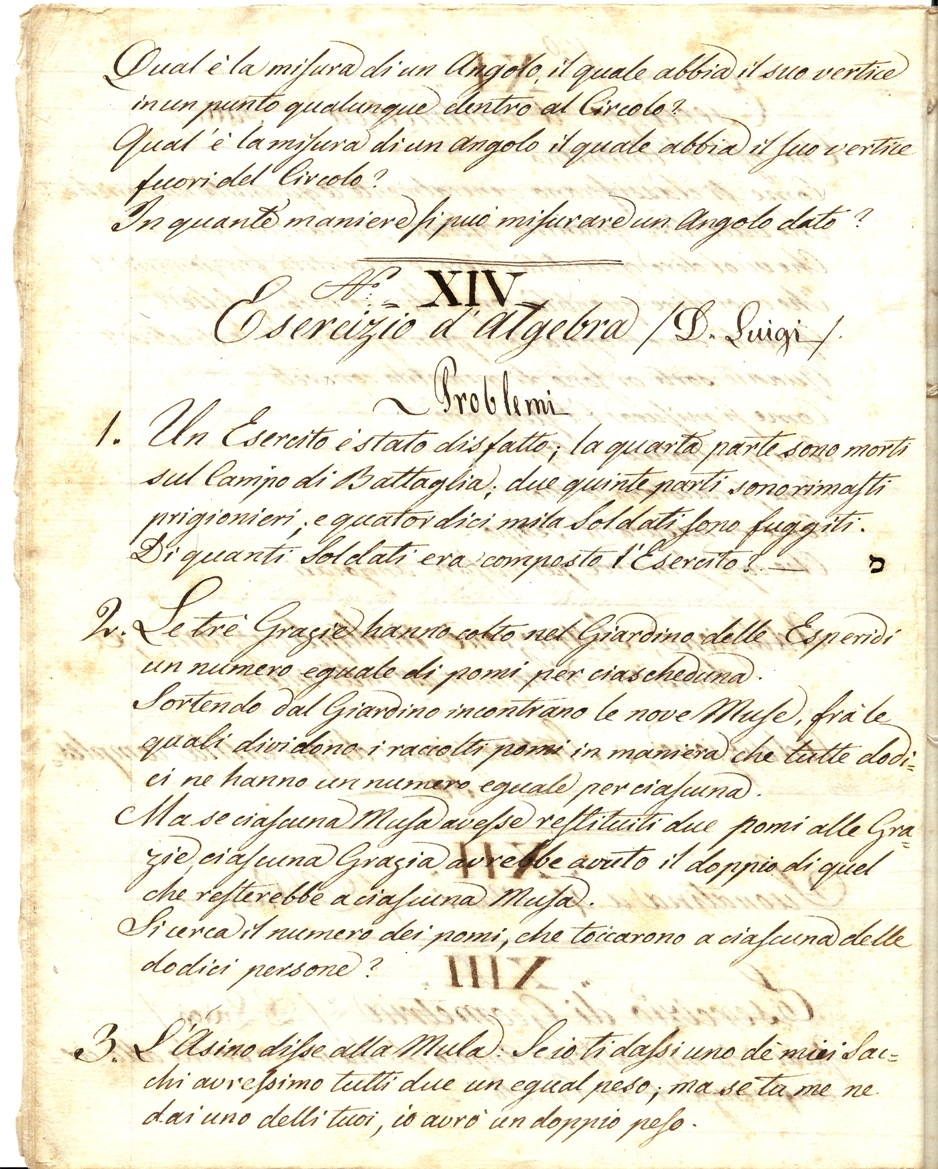 Qual è la misura di un Angolo, il quale abbia il suo vertice
in un punto qualunque dentro al Circolo?
Qual' è la misura di un angolo il quale abbia il suo vertice
fuori del Circolo?
In quante maniere si può misurare un Angolo dato?
N.º XIV
Esercizio d'algebra /D. Luigi/.
Problemi
1. Un Esercito è stato disfatto; la quarta parte sono morti
sul Campo di Battaglia; due quinte parti sono rimasti
prigionieri; e quatordici mila Soldati sono fuggiti.
Di quanti Soldati era composto l'Esercito?
2. Le trè Grazie hanno colto nel Giardino delle Esperidi
un numero eguale di pomi per ciascheduna.
Sortendo dal Giardino incontrano le nove Muse, frà le
quali dividono i raccolti pomi in maniera che tutte dodi=
ci ne hanno un numero eguale per ciascuna.
Ma se ciascuna Musa avesse restituiti due pomi alle Gra=
zie ciascuna Grazia avrebbe avuto il doppio di quel
che resterebbe a ciascuna Musa.
Si cerca il numero dei pomi, che toccarono a ciascuna delle
dodici persone?
3. L'Asino disse alla Mula: Se io ti dassi uno dè miei Sac=
chi avressimo tutti due un egual peso; ma se tu me ne
dai uno delli tuoi, io avrò un doppio peso.